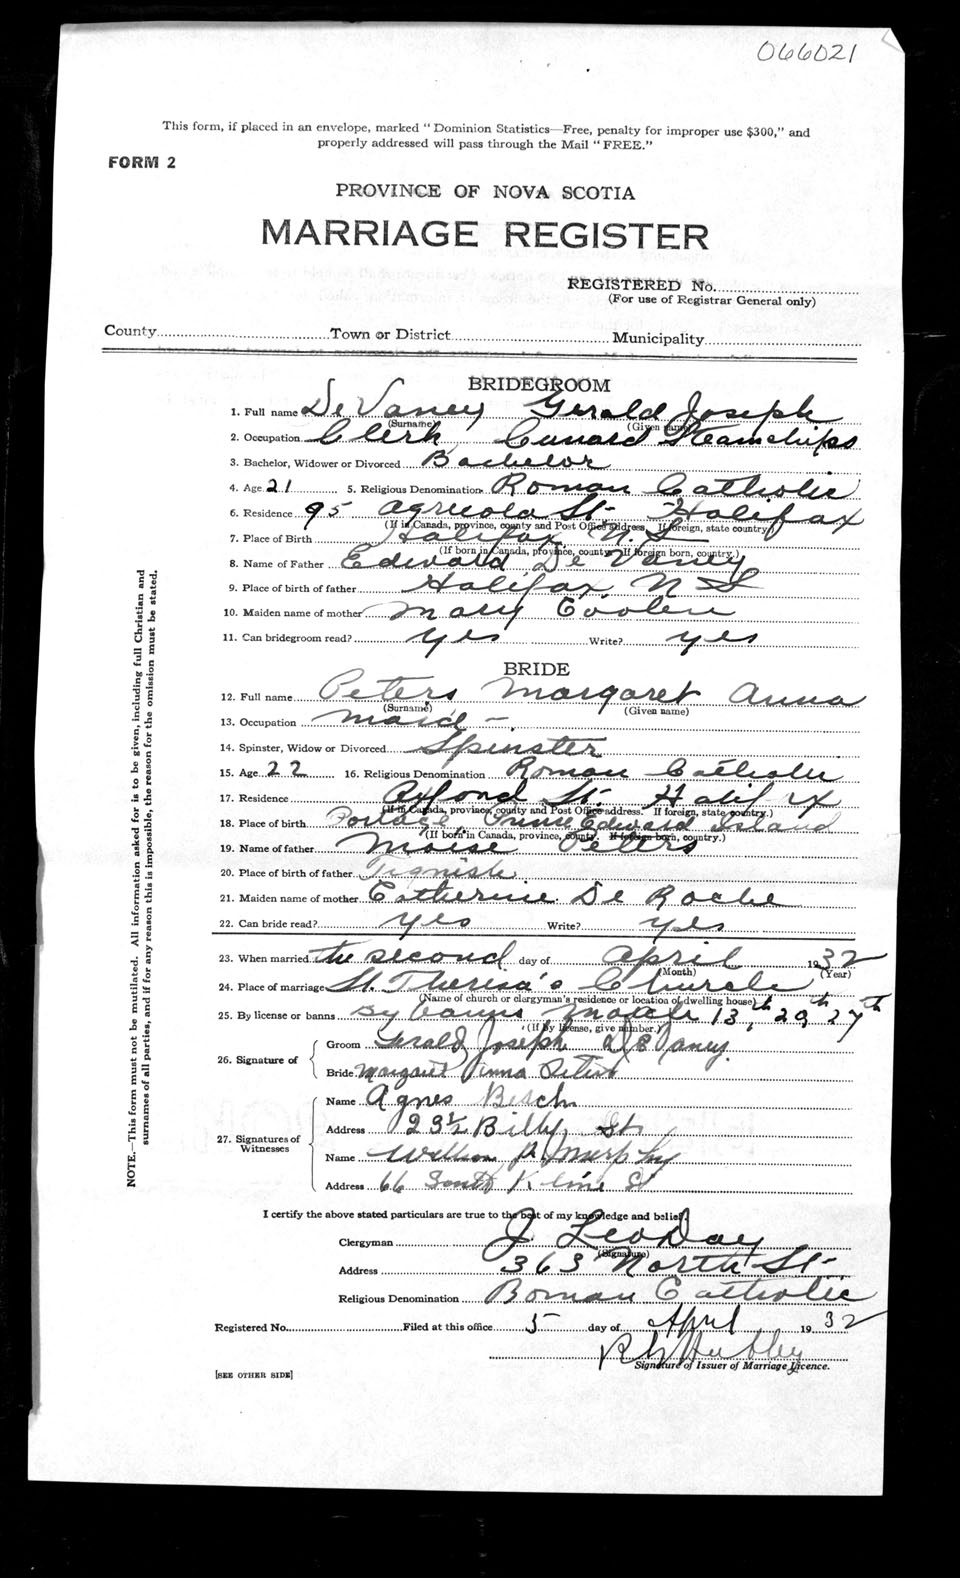 066021
This form, if placed in an envelope, marked "Dominion Statistics—Free, penalty for improper use $300," and
properly addressed will pass through the Mail "FREE."
FORM 2
PROVINCE OF NOVA SCOTIA
MARRIAGE REGISTER
REGISTERED No.
(For use of Registrar General only)
County Town or District Municipality
BRIDEGROOM
1. Full name De Vaney Gerald Joseph
(Surname) (Given name)
2. Occupation Clerk Cunard Steamships
3. Bachelor, Widower or Divorced Bachelor
4. Age 21 5. Religious Denomination Roman Catholic
6. Residence 95 Agricola St Halifax
(If in Canada, province, county and Post Office address. If foreign, state country.)
7. Place of Birth Halifax N.S
(If born in Canada, province, county. If foreign born, country.)
8. Name of Father Edward De Vaney
9. Place of birth of father Halifax N S
10. Maiden name of mother Mary Coolen
11. Can bridegroom read? yes Write? yes
BRIDE
12. Full name Peters Margaret Anna
(Surname) (Given name)
13. Occupation maid -
14. Spinster, Widow or Divorced Spinster
15. Age 22 16. Religious Denomination Roman Catholic
17. Residence Oxford St. Halifax
(If in Canada, province, county and Post Office address. If foreign, state country.)
18. Place of birth Portage Prince Edward Island
(If born in Canada, province, county. If foreign born, country.)
19. Name of father Moise Peters
20. Place of birth of father Tignish
21. Maiden name of mother Catherine De Roche
22. Can bride read? yes Write? yes
23. When married the second day of April 1932
(Month) (Year)
24. Place of marriage St. Theresa's Church
(Name of church or clergyman's residence or location of dwelling house)
25. By license or banns By banns March 13th, 20th 27th
(If by license, give number.)
26. Signature of
Groom Gerald Joseph DeVaney
Bride Margaret Anna Peters
27. Signatures of Witnesses
Name Agnes
Address 23½ St
Name William P. Murphy
Address 66 South Kline St
I certify the above stated particulars are true to the best of my knowledge and belief.
Clergyman J Leo Day
(Signature)
Address 363 North St.
Religious Denomination Roman Catholic
Registered No. Filed at this office 5 day of April 1932
Signature of Issuer of Marriage Licence.
[SEE OTHER SIDE]
NOTE.—This form must not be mutilated. All information asked for is to be given, including full Christian and
surnames of all parties, and if for any reason this is impossible, the reason for the omission must be stated.